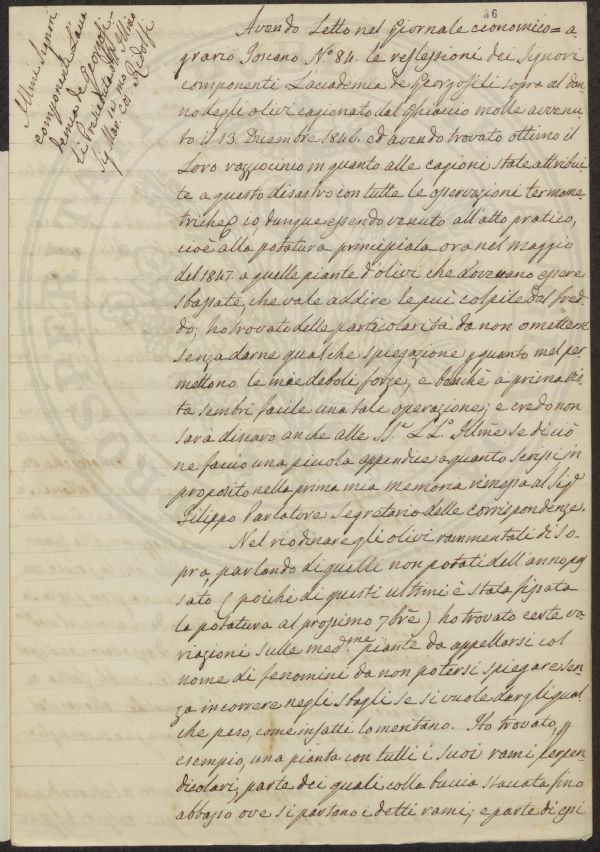 86
Illmi Signori
componenti L'acca
demia de Georgofi-
li Presieduta dall' Illmo
Sig Mar: Cos: Ridolfi
Avendo Letto nel Giornale economico=a
grario Toscano N.o 84. le reflessioni dei Signori
componenti L'accademia de Georgofili sopra al dan
no degli olivi cagionato dal Ghiaccio molle avvenu
to il 13 Dicembre 1846. ed avendo trovato ottimo il
Loro razziocinio in quanto alle cagioni state attribui
te a questo disastro con tutte le operazioni termome
triche; io, dunque essendo venuto all'atto pratico,
cioè alla potatura principiata ora nel maggio
del 1847. a quelle piante d'olivi che dovevano essere
sbassate, che vale addire le più colpite dal fred
do; ho trovato delle particolarità da non omettere
senza darne qualche spiegazione p quanto mel per
mettono le mie deboli forze, e benchè a prima vis
ta sembri facile una tale operazione; e credo non
sarà discaro anche alle SS.e LL.o Illme se di ciò
ne faccio una piccola appendice a quanto scrissi in
proposito nella prima mia memoria rimessa al Sig.r
Filippo Parlatore Segretario delle corrispondenze.
Nel riordinare gli olivi rammentati di so
pra, parlando di quelli non potati dell'anno pas
sato (poichè di questi ultimi è stata fissata
la potatura al prossimo 7bre) ho trovato certe va
riazioni sulle med.me piante da appellarsi col
nome di fenomini da non potersi spiegare sen
za incorrere negli sbagli se si vuole dargli qual
che peso, come infatti lo meritano. Ho trovato, p
esempio, una pianta con tutti i suoi rami perpen
dicolari, parte dei quali colla buccia staccata fino
abbasso ove si partano i detti rami; e parte di essi